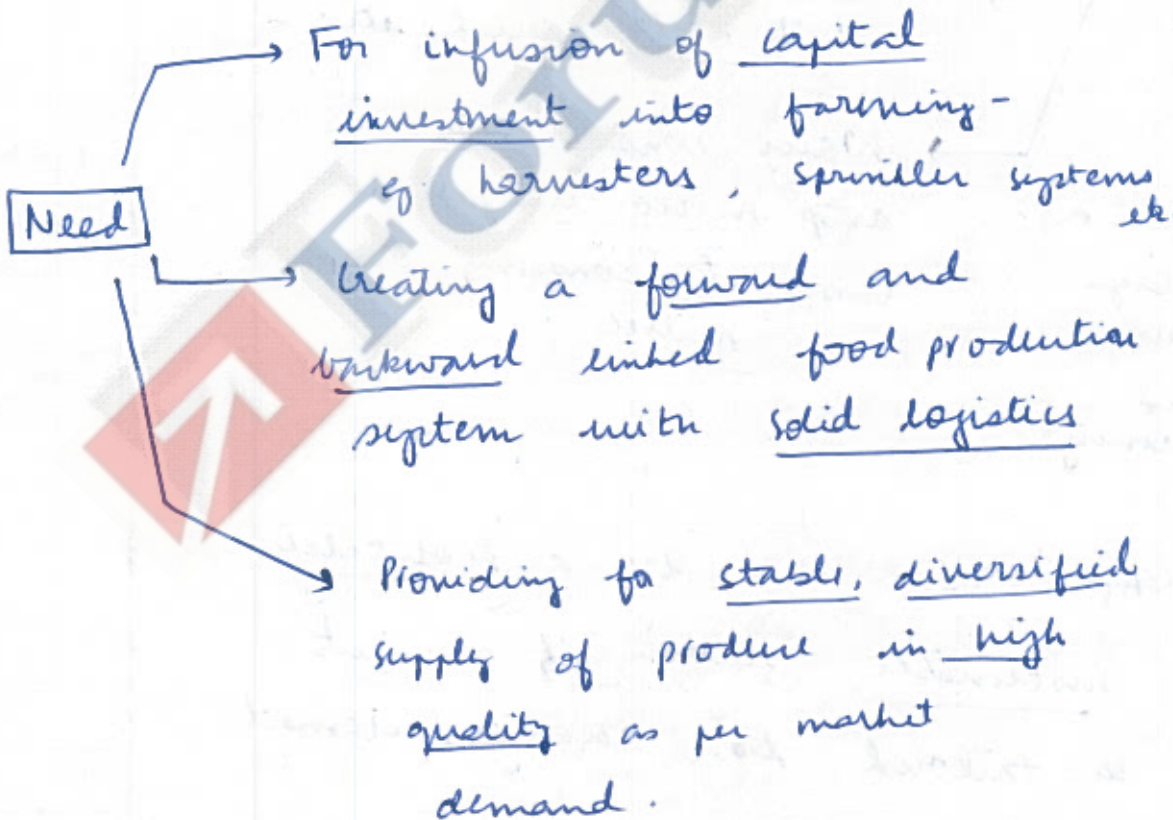 For infusion of capital
investment into farming -
eg harvesters, sprinkler systems
etc
Need
Creating a forward and
backward linked food production
system with solid logistics
Providing for stable, diversified
supply of produce in high
quality as per market
demand.
Foru